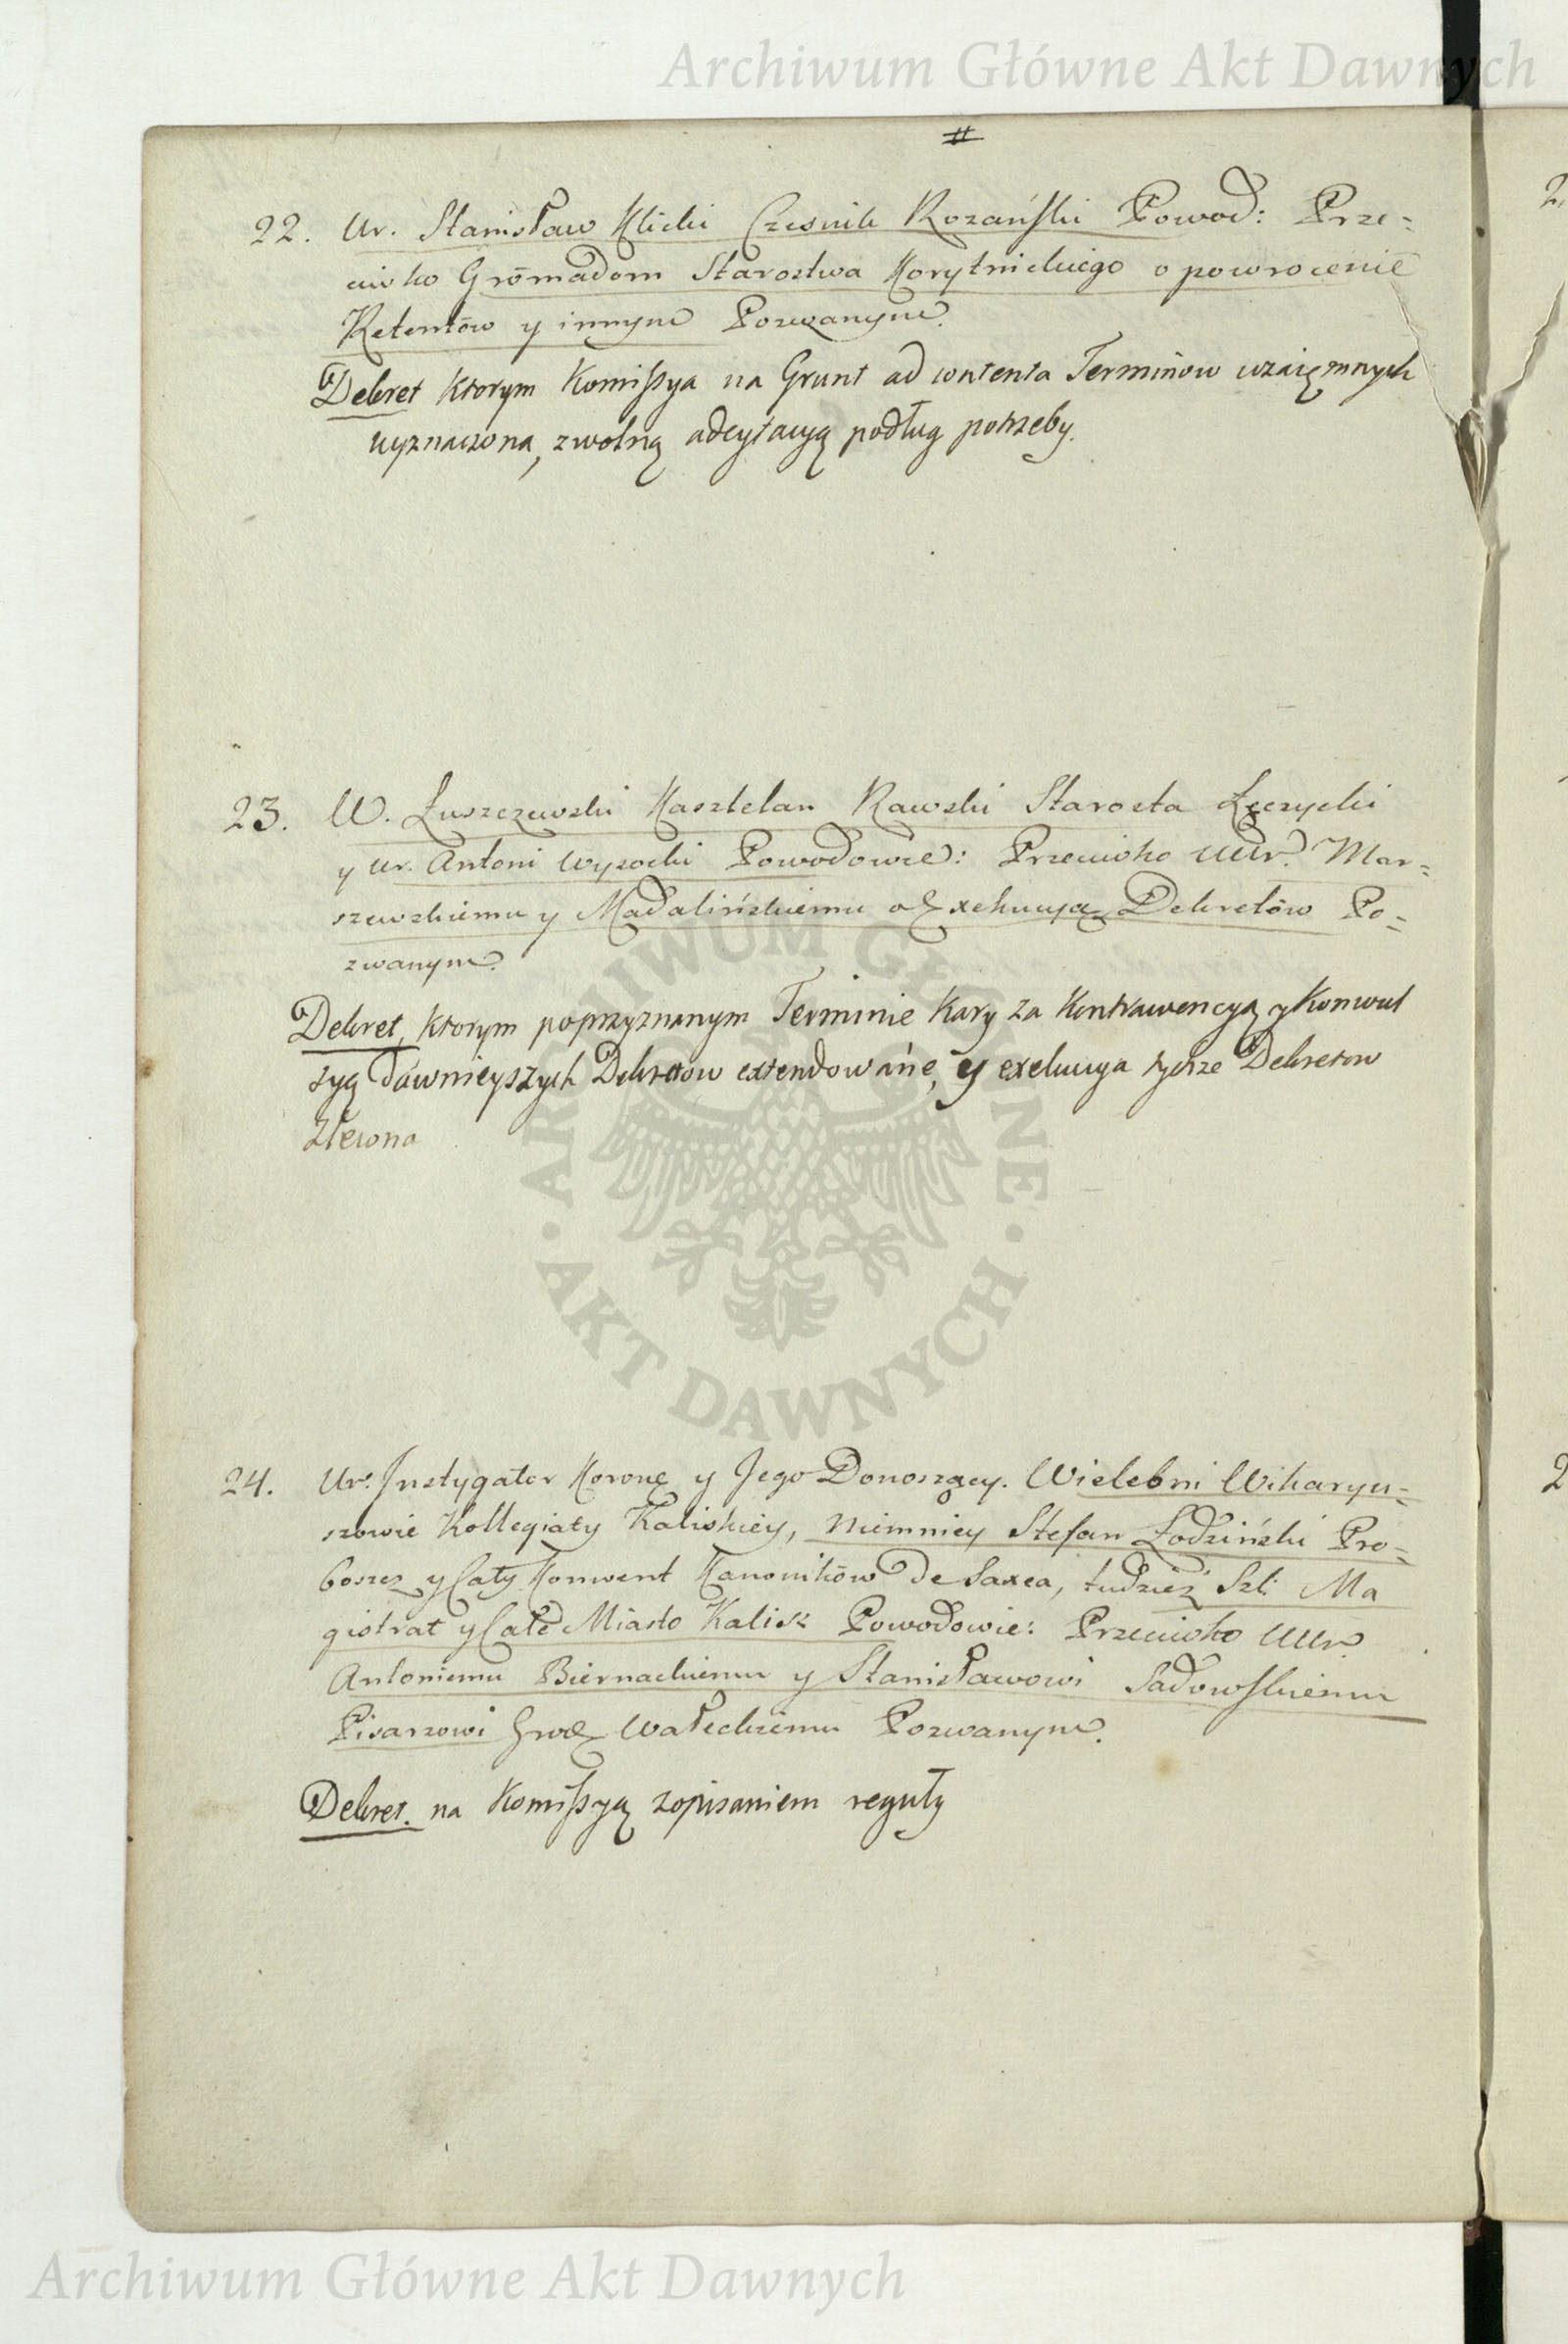 Archiwum Główne Akt Dawnych
#
22. Ur. Stanisław Klicki Czesnik Rozański Powod: Prze=
ciwko Gromadom Starostwa Korytnickiego o powrocenie
Retentów y innym Pozwanym.
Dekret ktorym Komissya na Grunt ad contenta Terminow wzaięmnych
wyznaczona, zwolną adcytacyą podług potrzeby.
23. W. Łuszczewski Kasztelan Rawski Starosta Łęczycki
y Ur. Antoni Wysocki Powodowie: Przeciwko UUr. Mar=
szewskiemu y Madalińskiemu o Exekucyą Dekretów Po=
zwanym.
Dekret, ktorym poprzyznanym Terminie Kary za Kontrawencyą y Konwul
syą dawnieyszych Dekretow extendowane, y exekucya tychze Dekretow
zlecona
24. Ur. Instygator Koronę y Jego Donoszący. Wielebni Wikaryu=
szowie Kollegiaty Kaliskiey, niemniey Stefan Łodziński Pro=
boszcz y Cały Konwent Kanoników de Saxea, tudzież Szl: Ma
gistrat y Całe Miasto Kalisz Powodowie: Przeciwko UUr.
Antoniemu Biernackiemu y Stanisławowi Sadowskiemu
Pisarzowi Grodz Wałeckiemu Pozwanym.
Dekret. na Komissyą zopisaniem reguły
ARCHIWUM GŁÓWNE · AKT DAWNYCH ·
Archiwum Główne Akt Dawnych